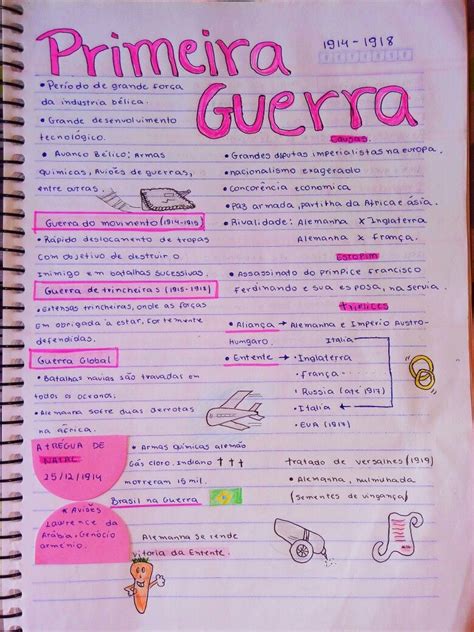 Primeira
Guerra
1914-1918
• Período de grande força
da industria bélica.
• Grande desenvolvimento
tecnológico.
• Avanco Bélico: Armas
químicas, Aviões de guerras,
entre outras.
Guerra do movimento (1914-1915)
• Rápido deslocamento de tropas
com objetivo de destruir o
Inimigo em batalhas sucessivos.
Guerra de trincheiras (1915-1918)
• Extensas trincheiras, onde as forças
em obrigada a estar. Fortemente
defendidas.
Guerra Global
• Batalhas navias são travadas em
todos o oceano;
• Alemanha sofre duas derrotas
na africa.
A TREGUA DE
NATAL
25/12/1914
* Aviões
Lawrence da
Arábia. Genócio
armenio.
Causas
• Grandes disputas imperialistas na europa.
• nacionalismo exagerado
• Concorência economica
• Paz armada, partilha da Africa e ásia.
• Rivalidade: Alemanha x Inglaterra
Alemanha x frança.
Estopim
• Assassinato do principe Francisco
Ferdinando e sua esposa, na servia.
Triplices
• Aliança → Alemanha e Imperio Austro-
Hungaro. Italia
• Entente → • Inglaterra
• frança
• Russia (até 1917)
• Italia
• EUA (1917)
• Armas químicas alemão
Gás cloro, Indiano †††
morreram 15 mil.
Brasil na Guerra
Alemanha se rende
vitoria da Entente.
tratado de versalhes (1919)
• Alemanha, humilhada
(sementes de vingança)